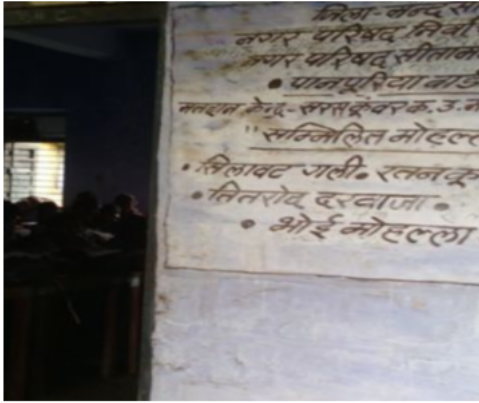 जिला-मन्दसौ
नगर परिषद् निर्वा
नगर परिषद् सीताम
• पानपुरिया वार्ड
मतदान केन्द्र-सरसकूंवर क.उ.म
"सम्मिलित मोहल्ल
• सिलावट गली • रतनकू
• तितरोद दरवाजा •
• भोई मोहल्ला